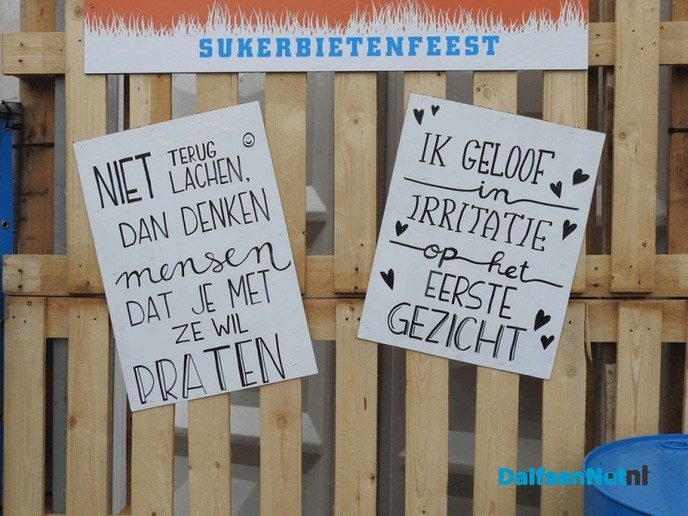 SUKERBIETENFEEST
NIET TERUG
LACHEN,
DAN DENKEN
mensen
DAT JE MET
ZE WIL
PRATEN
IK GELOOF
in
IRRITATIE
op het
EERSTE
GEZICHT
DalfsenNet.nl